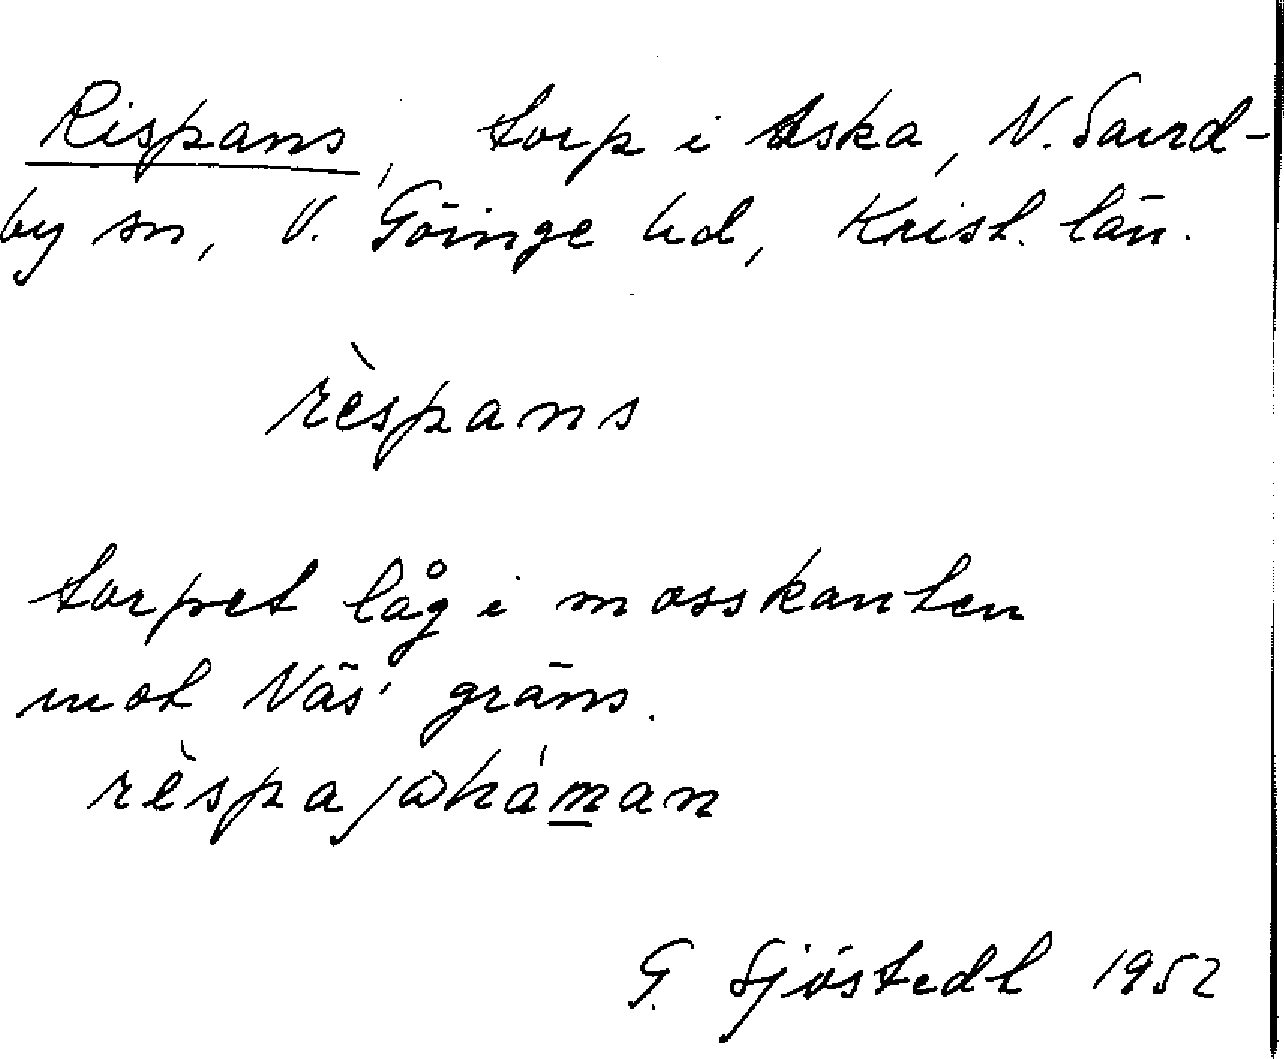 Rispans, torp i Aska, N. Sand-
by sn, V. Göinge hd, Krist. län.
rèspans
torpet låg i mosskanten
mot Näs' gräns.
G. Sjöstedt 1952